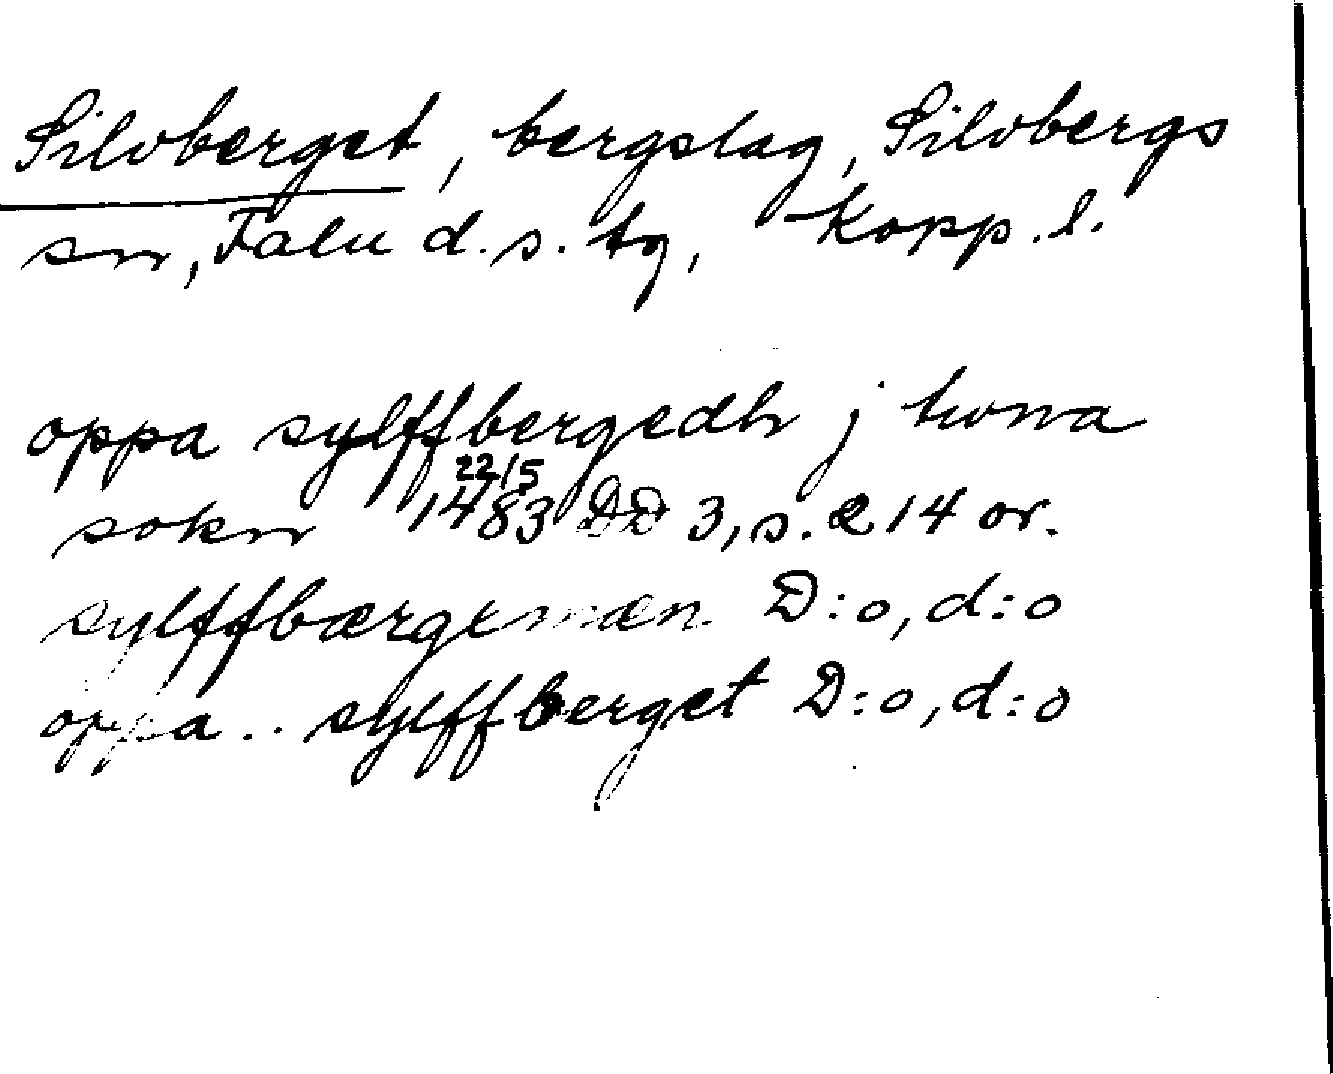 Silvberget, bergslag, Silvbergs
sn, Falu d.s. tg, Kopp. l.
oppa sylffbergedh j twna
sokn 22/5 1483 DD 3, s. 214 or.
sylffbærgemæn D:o, d:o
oppa .. sylffberget D:o, d:o